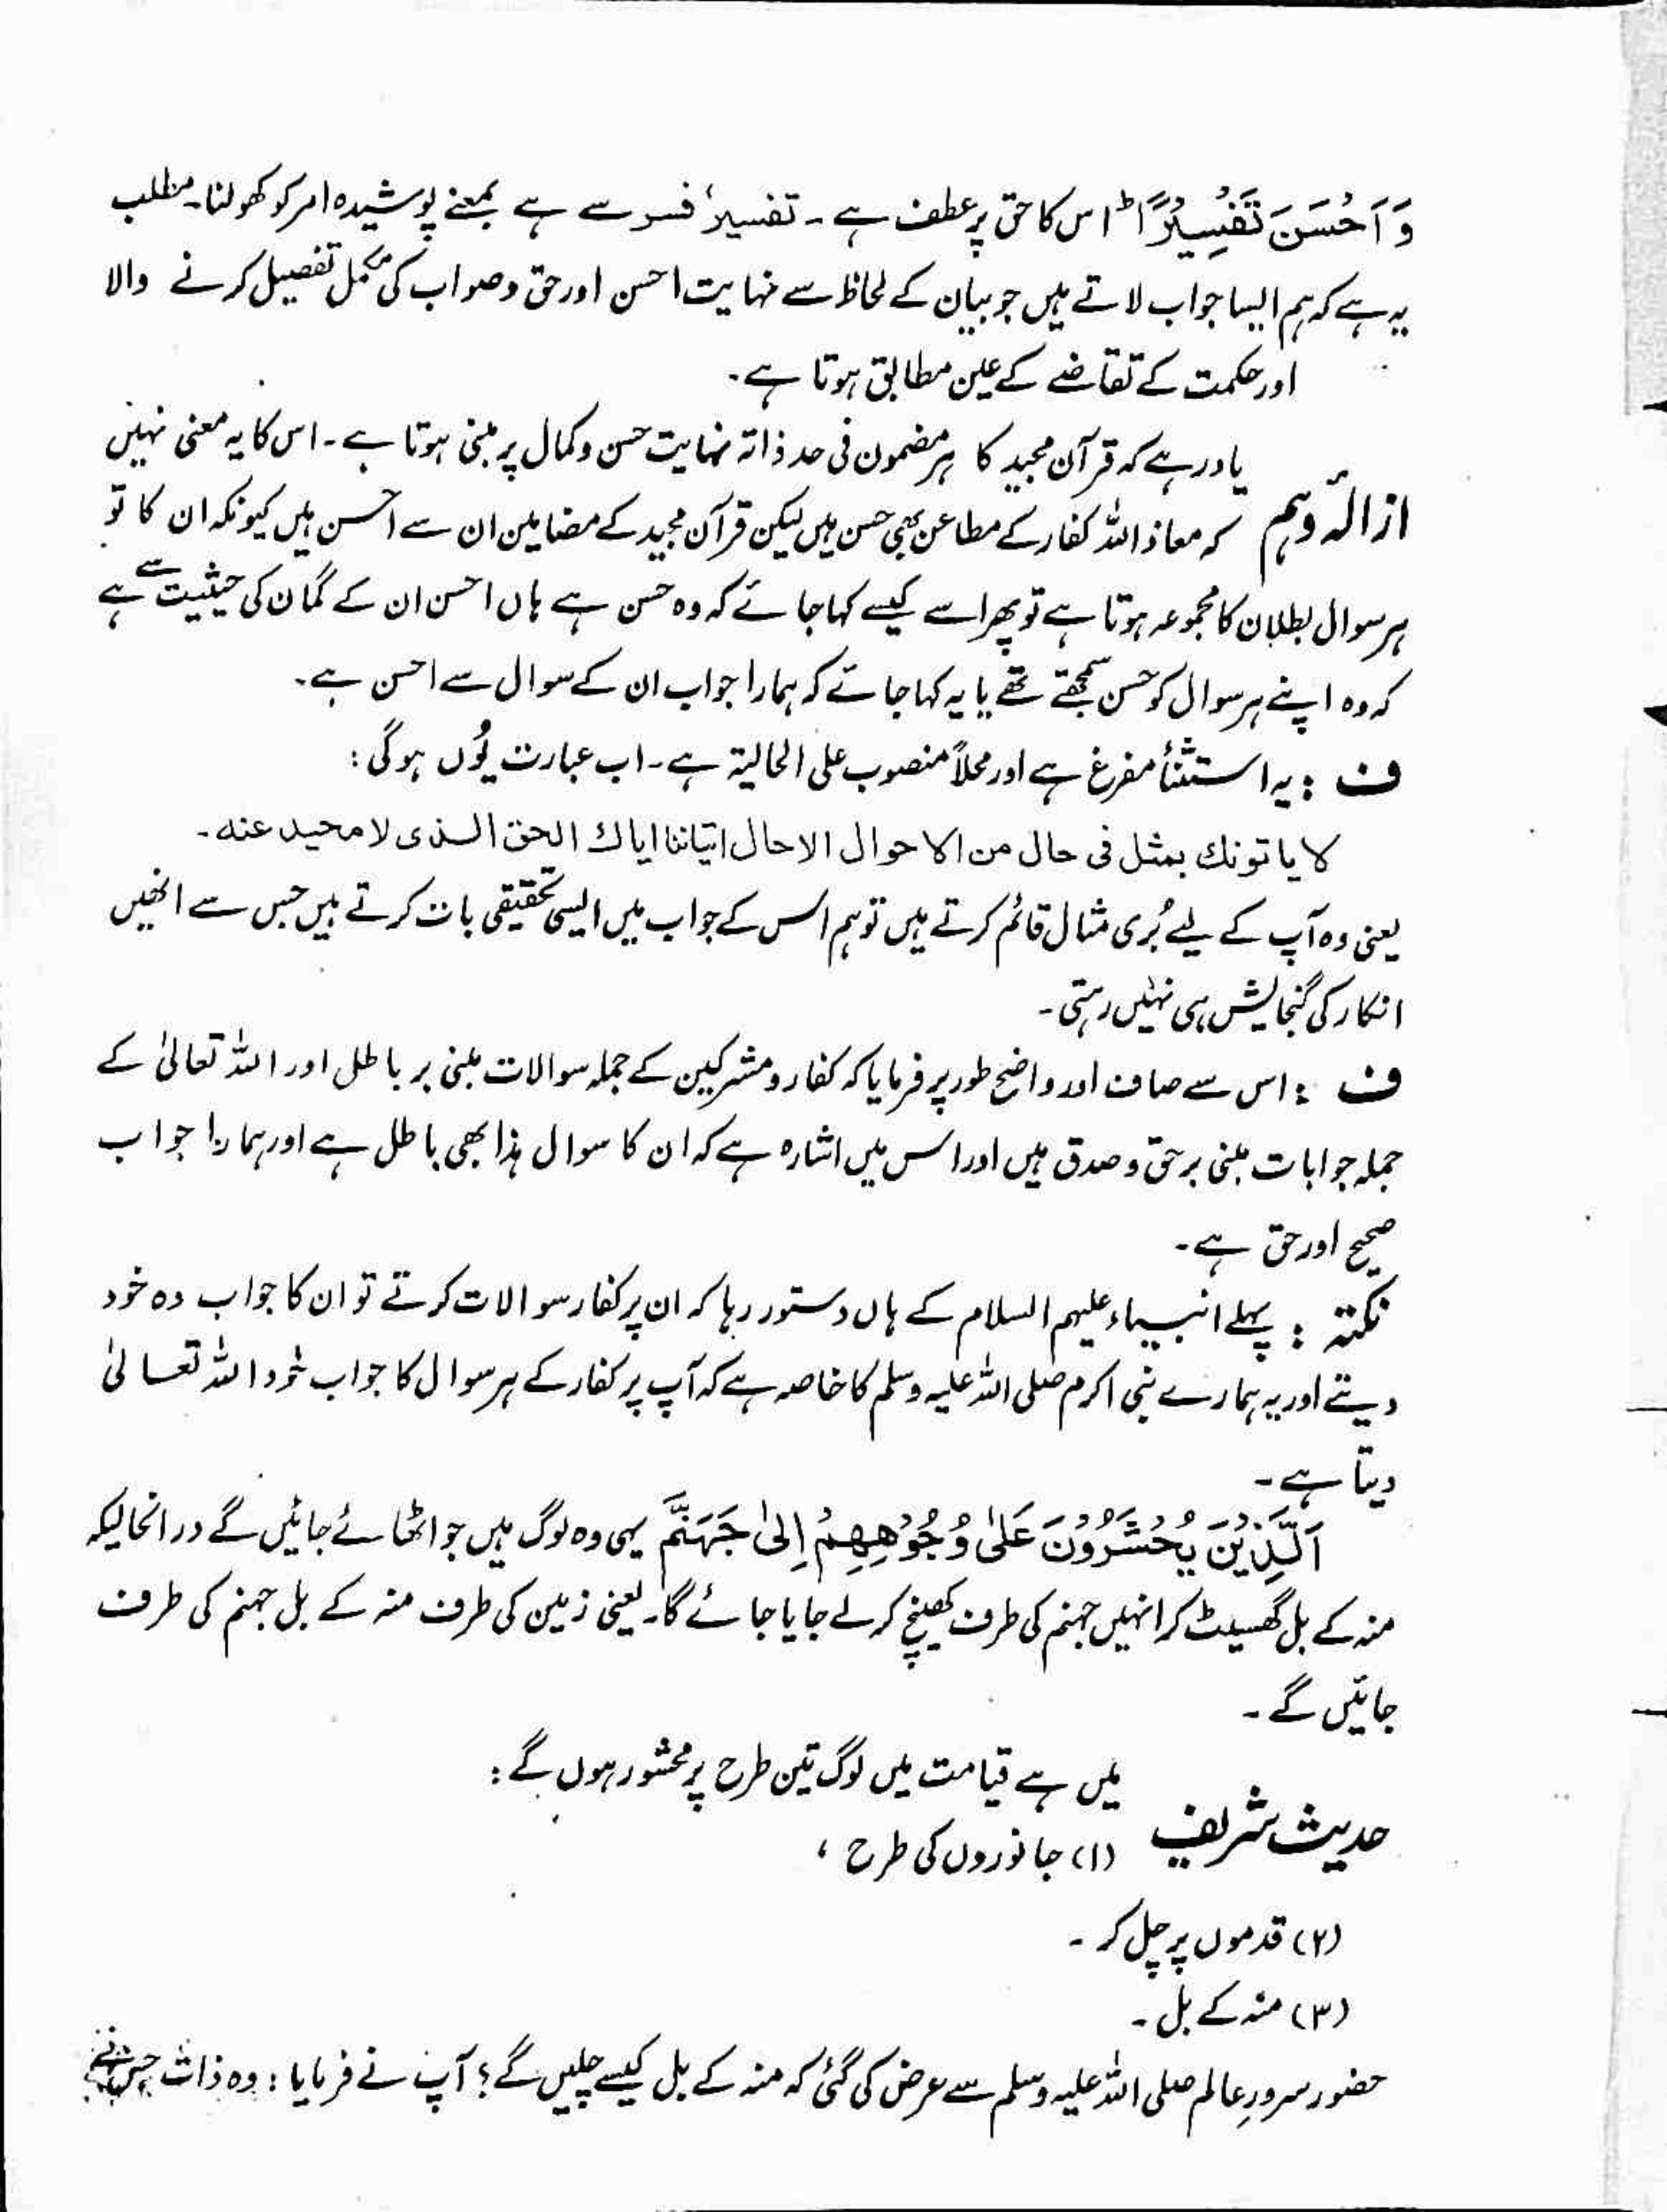 وَاَحْسَنَ تَفْسِیْرًاؕ اس کا حق پر عطف ہے ۔ تفسیرًا فسر سے ہے بمعنے پوشیدہ امر کو کھولنا۔ مطلب
یہ ہے کہ ہم ایسا جواب لاتے ہیں جو بیان کے لحاظ سے نہایت احسن اور حق وصواب کی مکمل تفصیل کرنے والا
اور حکمت کے تقاضے کے عین مطابق ہوتا ہے۔
یاد رہے کہ قرآن مجید کا ہر مضمون فی حد ذاتہ نہایت حسن وکمال پر مبنی ہوتا ہے۔ اس کا یہ معنی نہیں
ازالۂ وہم کہ معاذ اللہ کفار کے مطاعن بھی حسن ہیں لیکن قرآن مجید کے مضامین ان سے احسن ہیں کیونکہ ان کا تو
ہر سوال بطلان کا مجموعہ ہوتا ہے تو پھر اسے کیسے کہا جائے کہ وہ حسن ہے ہاں احسن ان کے گمان کی حیثیت سے ہے
کہ وہ اپنے ہر سوال کو حسن سمجھتے تھے یا یہ کہا جائے کہ ہمارا جواب ان کے سوال سے احسن ہے۔
ف : یہ استثنأ مفرغ ہے اور محلاً منصوب علی الحالیۃ ہے۔ اب عبارت یُوں ہوگی :
لا یاتونك بمثل فی حال من الاحوال الاحال ایتاننا ایاك الحق الذی لا محید عنه۔
یعنی وہ آپ کے لیے بُری مثال قائم کرتے ہیں تو ہم اس کے جواب میں ایسی تحقیقی بات کرتے ہیں جس سے انھیں
انکار کی گنجایش ہی نہیں رہتی۔
ف : اس سے صاف اور واضح طور پر فرمایا کہ کفار و مشرکین کے جملہ سوالات مبنی بر باطل اور اللہ تعالیٰ کے
جملہ جوابات مبنی بر حق و صدق ہیں اور اس میں اشارہ ہے کہ ان کا سوال ہذا بھی باطل ہے اور ہمارا جواب
صحیح اور حق ہے۔
نکتہ : پہلے انبیاء علیہم السلام کے ہاں دستور رہا کہ ان پر کفار سوالات کرتے تو ان کا جواب وہ خود
دیتے اور یہ ہمارے نبی اکرم صلی اللہ علیہ وسلم کا خاصہ ہے کہ آپ پر کفار کے ہر سوال کا جواب خُود اللہ تعالیٰ
دیتا ہے۔
اَلَّذِیْنَ یُحْشَرُوْنَ عَلٰی وُجُوْهِهِمْ اِلٰی جَهَنَّمَ یہی وہ لوگ ہیں جو اٹھائے جائیں گے درانحالیکہ
منہ کے بل گھسیٹ کر انہیں جہنم کی طرف کھینچ کر لے جایا جائے گا۔ یعنی زمین کی طرف منہ کے بل جہنم کی طرف
جائیں گے۔
میں ہے قیامت میں لوگ تین طرح پر محشور ہوں گے :
حدیث شریف (۱) جانوروں کی طرح ،
(۲) قدموں پر چل کر ۔
(۳) منہ کے بل ۔
حضور سرورِ عالم صلی اللہ علیہ وسلم سے عرض کی گئی کہ منہ کے بل کیسے چلیں گے؟ آپ نے فرمایا : وہ ذات جس نے